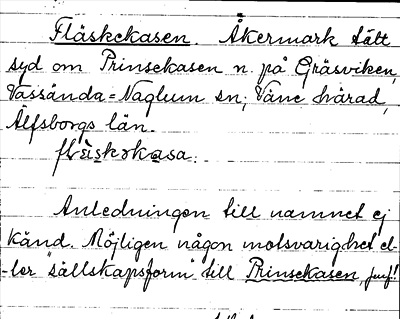 Fläskekasen. Åkermark tätt
syd om Prinsekasen n. på Gräsviken,
Vassända-Naglum sn; Väne härad,
Älfsborgs län.
flä̀iskəkasa.
Anledningen till namnet ej
känd. Möjligen någon motsvarighet el-
-ler "sällskapsform" till Prinsekasen, jmf!